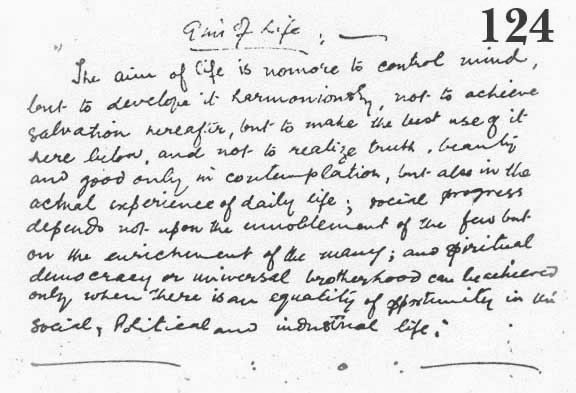 124
Aim of Life :—
" The aim of life is no more to control mind,
but to develope it harmoniously, not to achieve
salvation hereafter, but to make the best use of it
here below, and not to realize truth, beauty
and good only in contemplation, but also in the
actual experience of daily life; social progress
depends not upon the ennoblement of the few but
on the enrichment of the many; and spiritual
democracy or universal brotherhood can be achieved
only when there is an equality of opportunity in the
social, Political and industrial life."